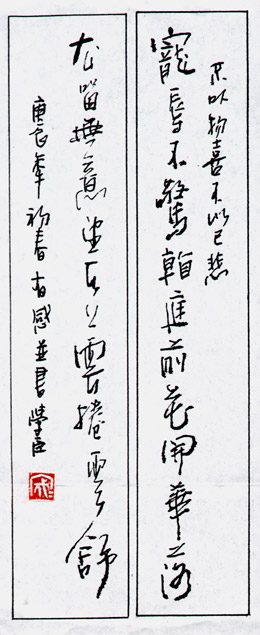 不以物喜不以己悲
寵辱不驚庭前花開華落
去留無意望天上雲捲雲舒
庚辰年初春有感並書學臣